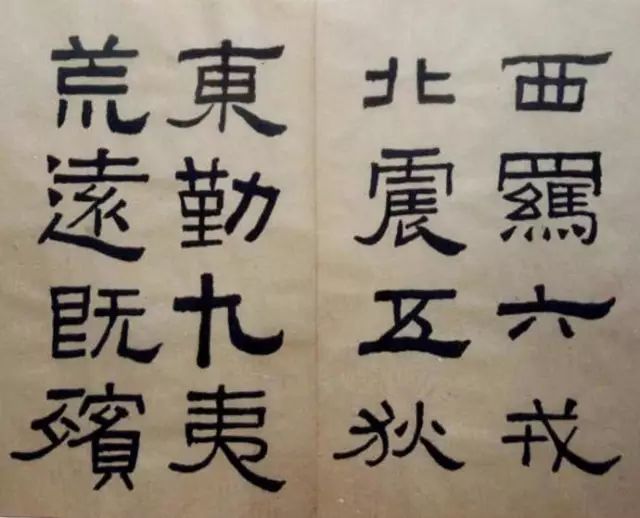 西羈六戎
北震五狄
東勤九夷
荒遠既殯